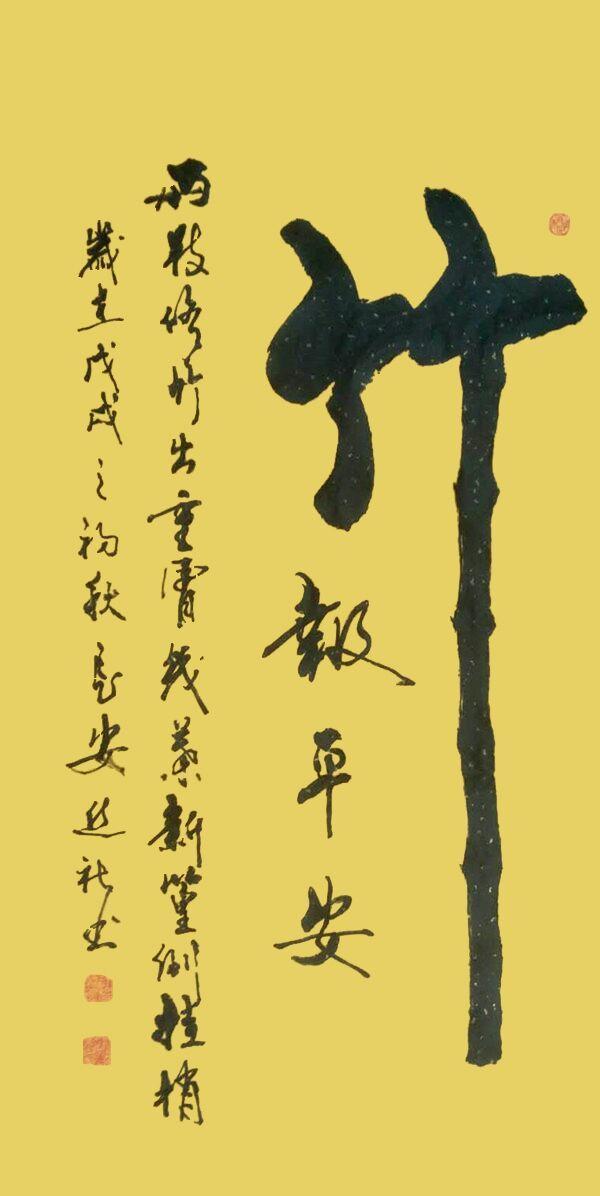 竹
報平安
兩枝修竹出重霄幾葉新篁倒挂梢
歲在戊戌之初秋長安社書